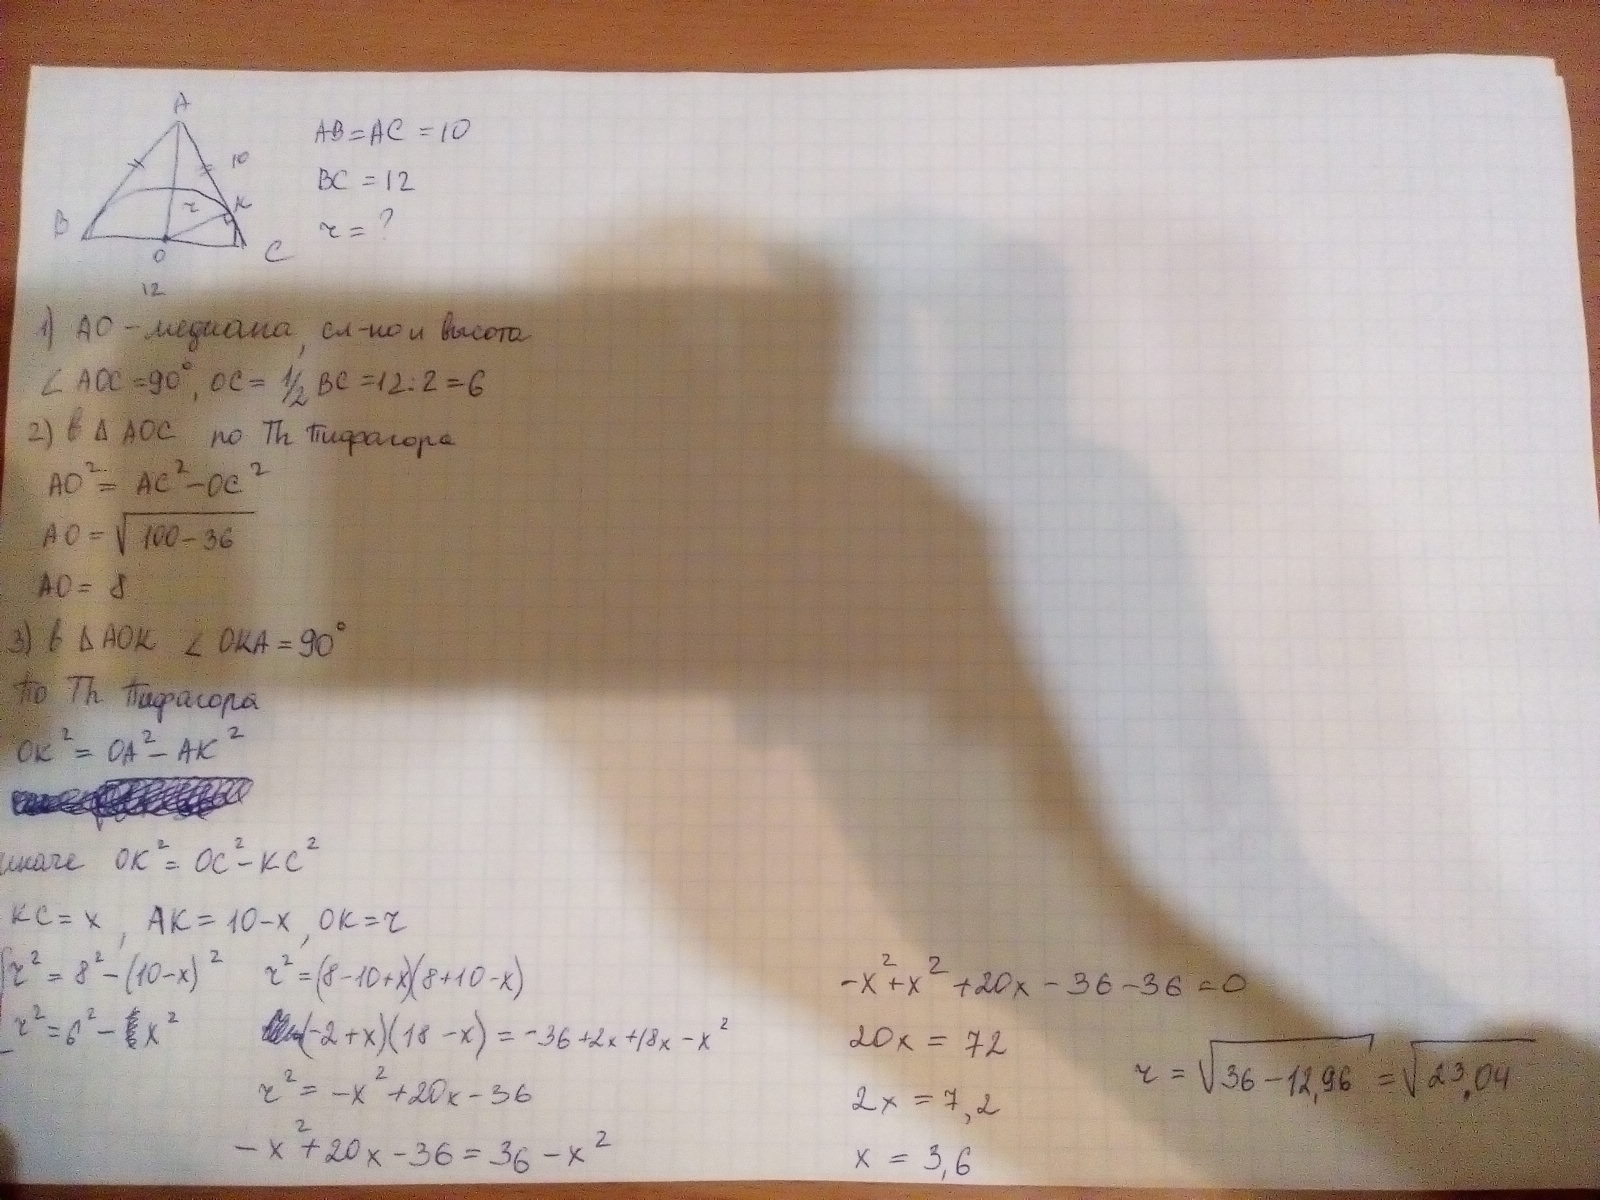 A
10
K
r
B
O
C
12
AB = AC = 10
BC = 12
r = ?
1) AO - медиана, сл-но и высота
∠ AOC = 90°, OC = 1/2 BC = 12:2 = 6
2) В Δ AOC по Th Пифагора
AO² = AC² - OC²
AO = √100 - 36
AO = 8
3) В Δ AOK ∠ OKA = 90°
По Th Пифагора
OK² = OA² - AK²
иначе OK² = OC² - KC²
KC = x, AK = 10 - x, OK = r
r² = 8² - (10-x)²
r² = 6² - x²
r² = (8-10+x)(8+10-x)
(-2+x)(18-x) = -36+2x+18x-x²
r² = -x²+20x-36
-x²+20x-36 = 36-x²
-x²+x²+20x-36-36 = 0
20x = 72
2x = 7,2
x = 3,6
r = √36-12,96 = √23,04